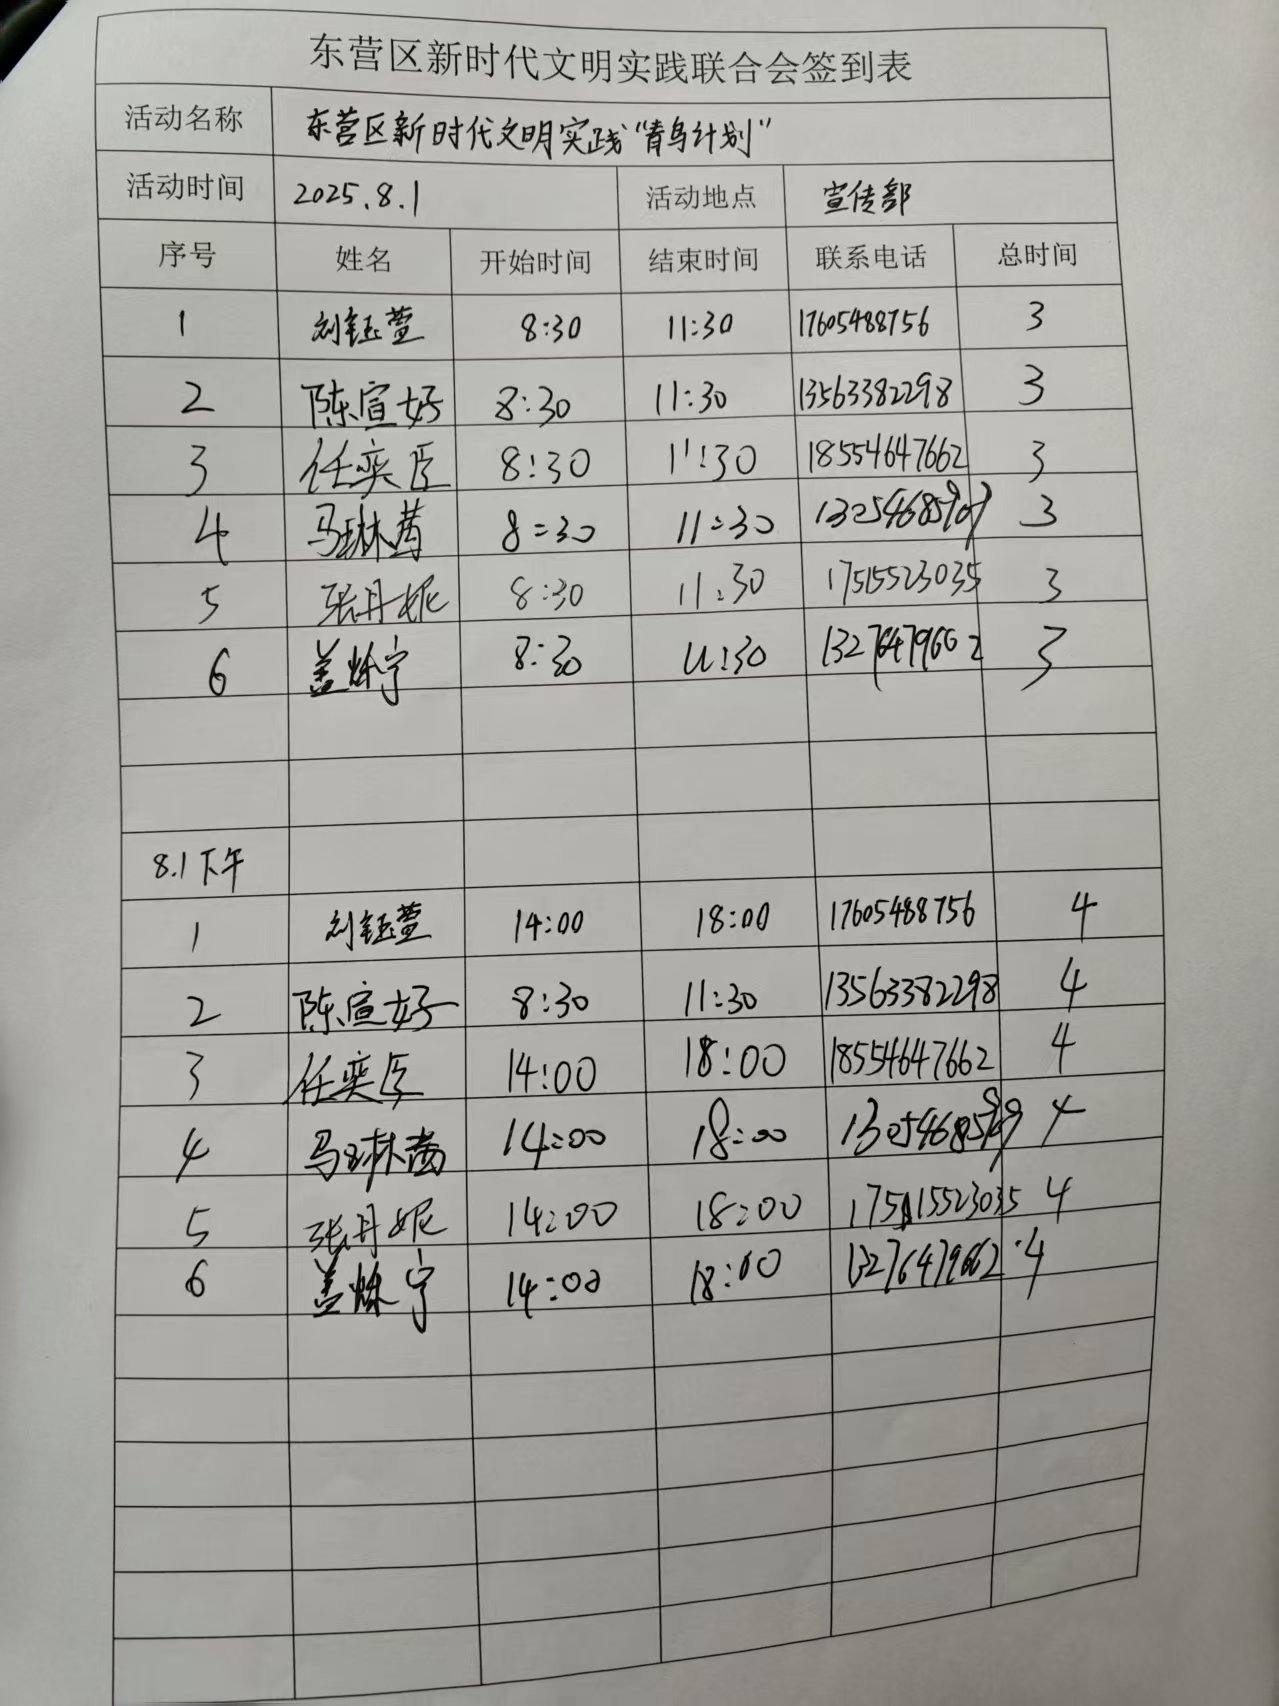 东营区新时代文明实践联合会签到表
活动名称 东营区新时代文明实践“青鸟计划”
活动时间 2025.8.1 活动地点 宣传部
序号 姓名 开始时间 结束时间 联系电话 总时间
1 刘钰萱 8:30 11:30 17605488756 3
2 陈宣好 8:30 11:30 13563382298 3
3 任奕臣 8:30 11:30 18554647662 3
4 马琳茜 8:30 11:30 3
5 张丹妮 8:30 11:30 17515523035 3
6 盖烁宁 8:30 11:30 13276479662 3
8.1下午
1 刘钰萱 14:00 18:00 17605488756 4
2 陈宣好 8:30 11:30 13563382298 4
3 任奕臣 14:00 18:00 18554647662 4
4 马琳茜 14:00 18:00 4
5 张丹妮 14:00 18:00 17515523035 4
6 盖烁宁 14:00 18:00 13276479662 4